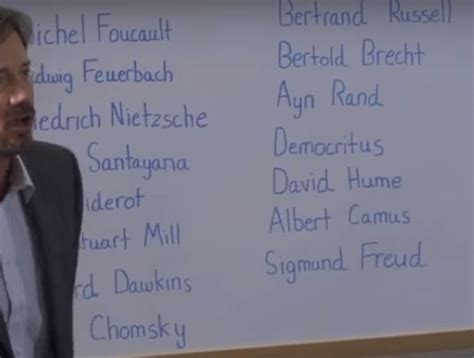 ichel Foucault
dwig Feuerbach
edrich Nietzsche
Santayana
iderot
tuart Mill
rd Dawkins
Chomsky
Bertrand Russell
Bertold Brecht
Ayn Rand
Democritus
David Hume
Albert Camus
Sigmund Freud